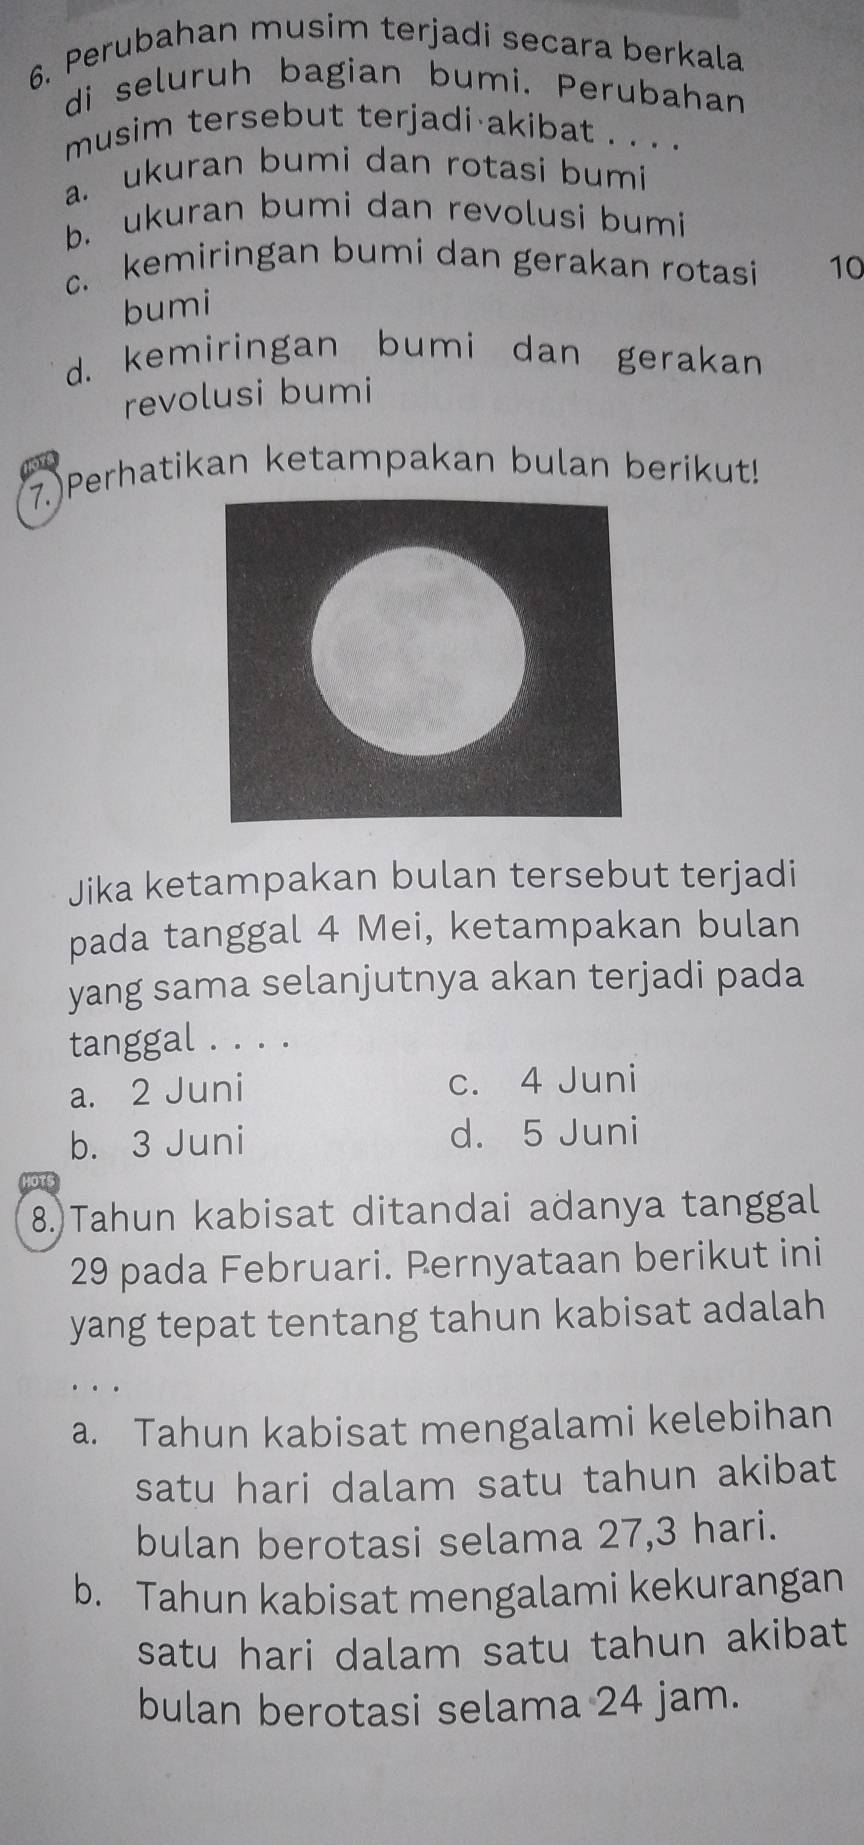 6. Perubahan musim terjadi secara berkala
di seluruh bagian bumi. Perubahan
musim tersebut terjadi akibat . . . .
a. ukuran bumi dan rotasi bumi
b. ukuran bumi dan revolusi bumi
c. kemiringan bumi dan gerakan rotasi
bumi
d. kemiringan bumi dan gerakan
revolusi bumi
10
HOTS
7. Perhatikan ketampakan bulan berikut!
Jika ketampakan bulan tersebut terjadi
pada tanggal 4 Mei, ketampakan bulan
yang sama selanjutnya akan terjadi pada
tanggal . . . .
a. 2 Juni
c. 4 Juni
b. 3 Juni
d. 5 Juni
HOTS
8. Tahun kabisat ditandai adanya tanggal
29 pada Februari. Pernyataan berikut ini
yang tepat tentang tahun kabisat adalah
. . .
a. Tahun kabisat mengalami kelebihan
satu hari dalam satu tahun akibat
bulan berotasi selama 27,3 hari.
b. Tahun kabisat mengalami kekurangan
satu hari dalam satu tahun akibat
bulan berotasi selama 24 jam.